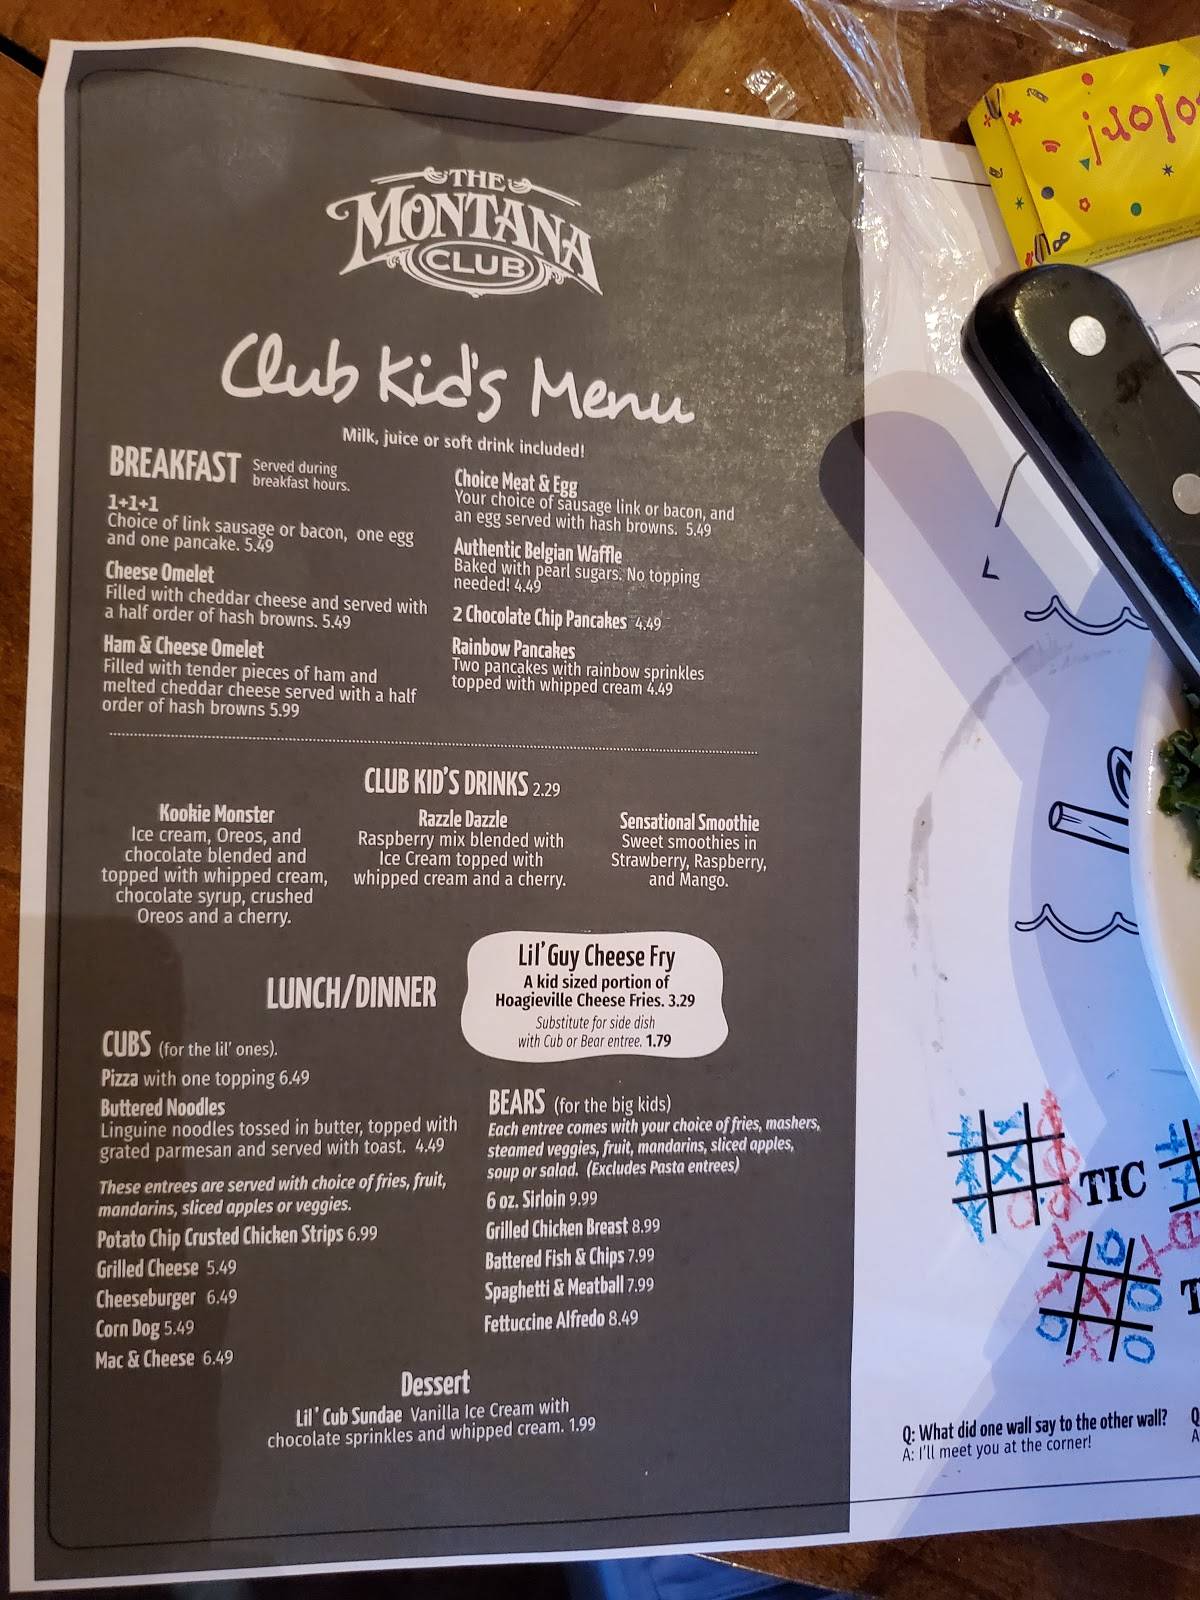 THE
MONTANA
CLUB
Club Kid's Menu
Milk, juice or soft drink included!
BREAKFAST Served during
breakfast hours.
1+1+1
Choice of link sausage or bacon, one egg
and one pancake. 5.49
Cheese Omelet
Filled with cheddar cheese and served with
a half order of hash browns. 5.49
Ham & Cheese Omelet
Filled with tender pieces of ham and
melted cheddar cheese served with a half
order of hash browns 5.99
Choice Meat & Egg
Your choice of sausage link or bacon, and
an egg served with hash browns. 5.49
Authentic Belgian Waffle
Baked with pearl sugars. No topping
needed! 4.49
2 Chocolate Chip Pancakes 4.49
Rainbow Pancakes
Two pancakes with rainbow sprinkles
topped with whipped cream 4.49
CLUB KID'S DRINKS 2.29
Kookie Monster
Ice cream, Oreos, and
chocolate blended and
topped with whipped cream,
chocolate syrup, crushed
Oreos and a cherry.
Razzle Dazzle
Raspberry mix blended with
Ice Cream topped with
whipped cream and a cherry.
Sensational Smoothie
Sweet smoothies in
Strawberry, Raspberry,
and Mango.
LUNCH/DINNER
Lil' Guy Cheese Fry
A kid sized portion of
Hoagieville Cheese Fries. 3.29
Substitute for side dish
with Cub or Bear entree. 1.79
CUBS (for the lil' ones).
Pizza with one topping 6.49
Buttered Noodles
Linguine noodles tossed in butter, topped with
grated parmesan and served with toast. 4.49
These entrees are served with choice of fries, fruit,
mandarins, sliced apples or veggies.
Potato Chip Crusted Chicken Strips 6.99
Grilled Cheese 5.49
Cheeseburger 6.49
Corn Dog 5.49
Mac & Cheese 6.49
BEARS (for the big kids)
Each entree comes with your choice of fries, mashers,
steamed veggies, fruit, mandarins, sliced apples,
soup or salad. (Excludes Pasta entrees)
6 oz. Sirloin 9.99
Grilled Chicken Breast 8.99
Battered Fish & Chips 7.99
Spaghetti & Meatball 7.99
Fettuccine Alfredo 8.49
Dessert
Lil' Cub Sundae Vanilla Ice Cream with
chocolate sprinkles and whipped cream. 1.99
TIC
T
Q: What did one wall say to the other wall?
A: I'll meet you at the corner!
Q
A